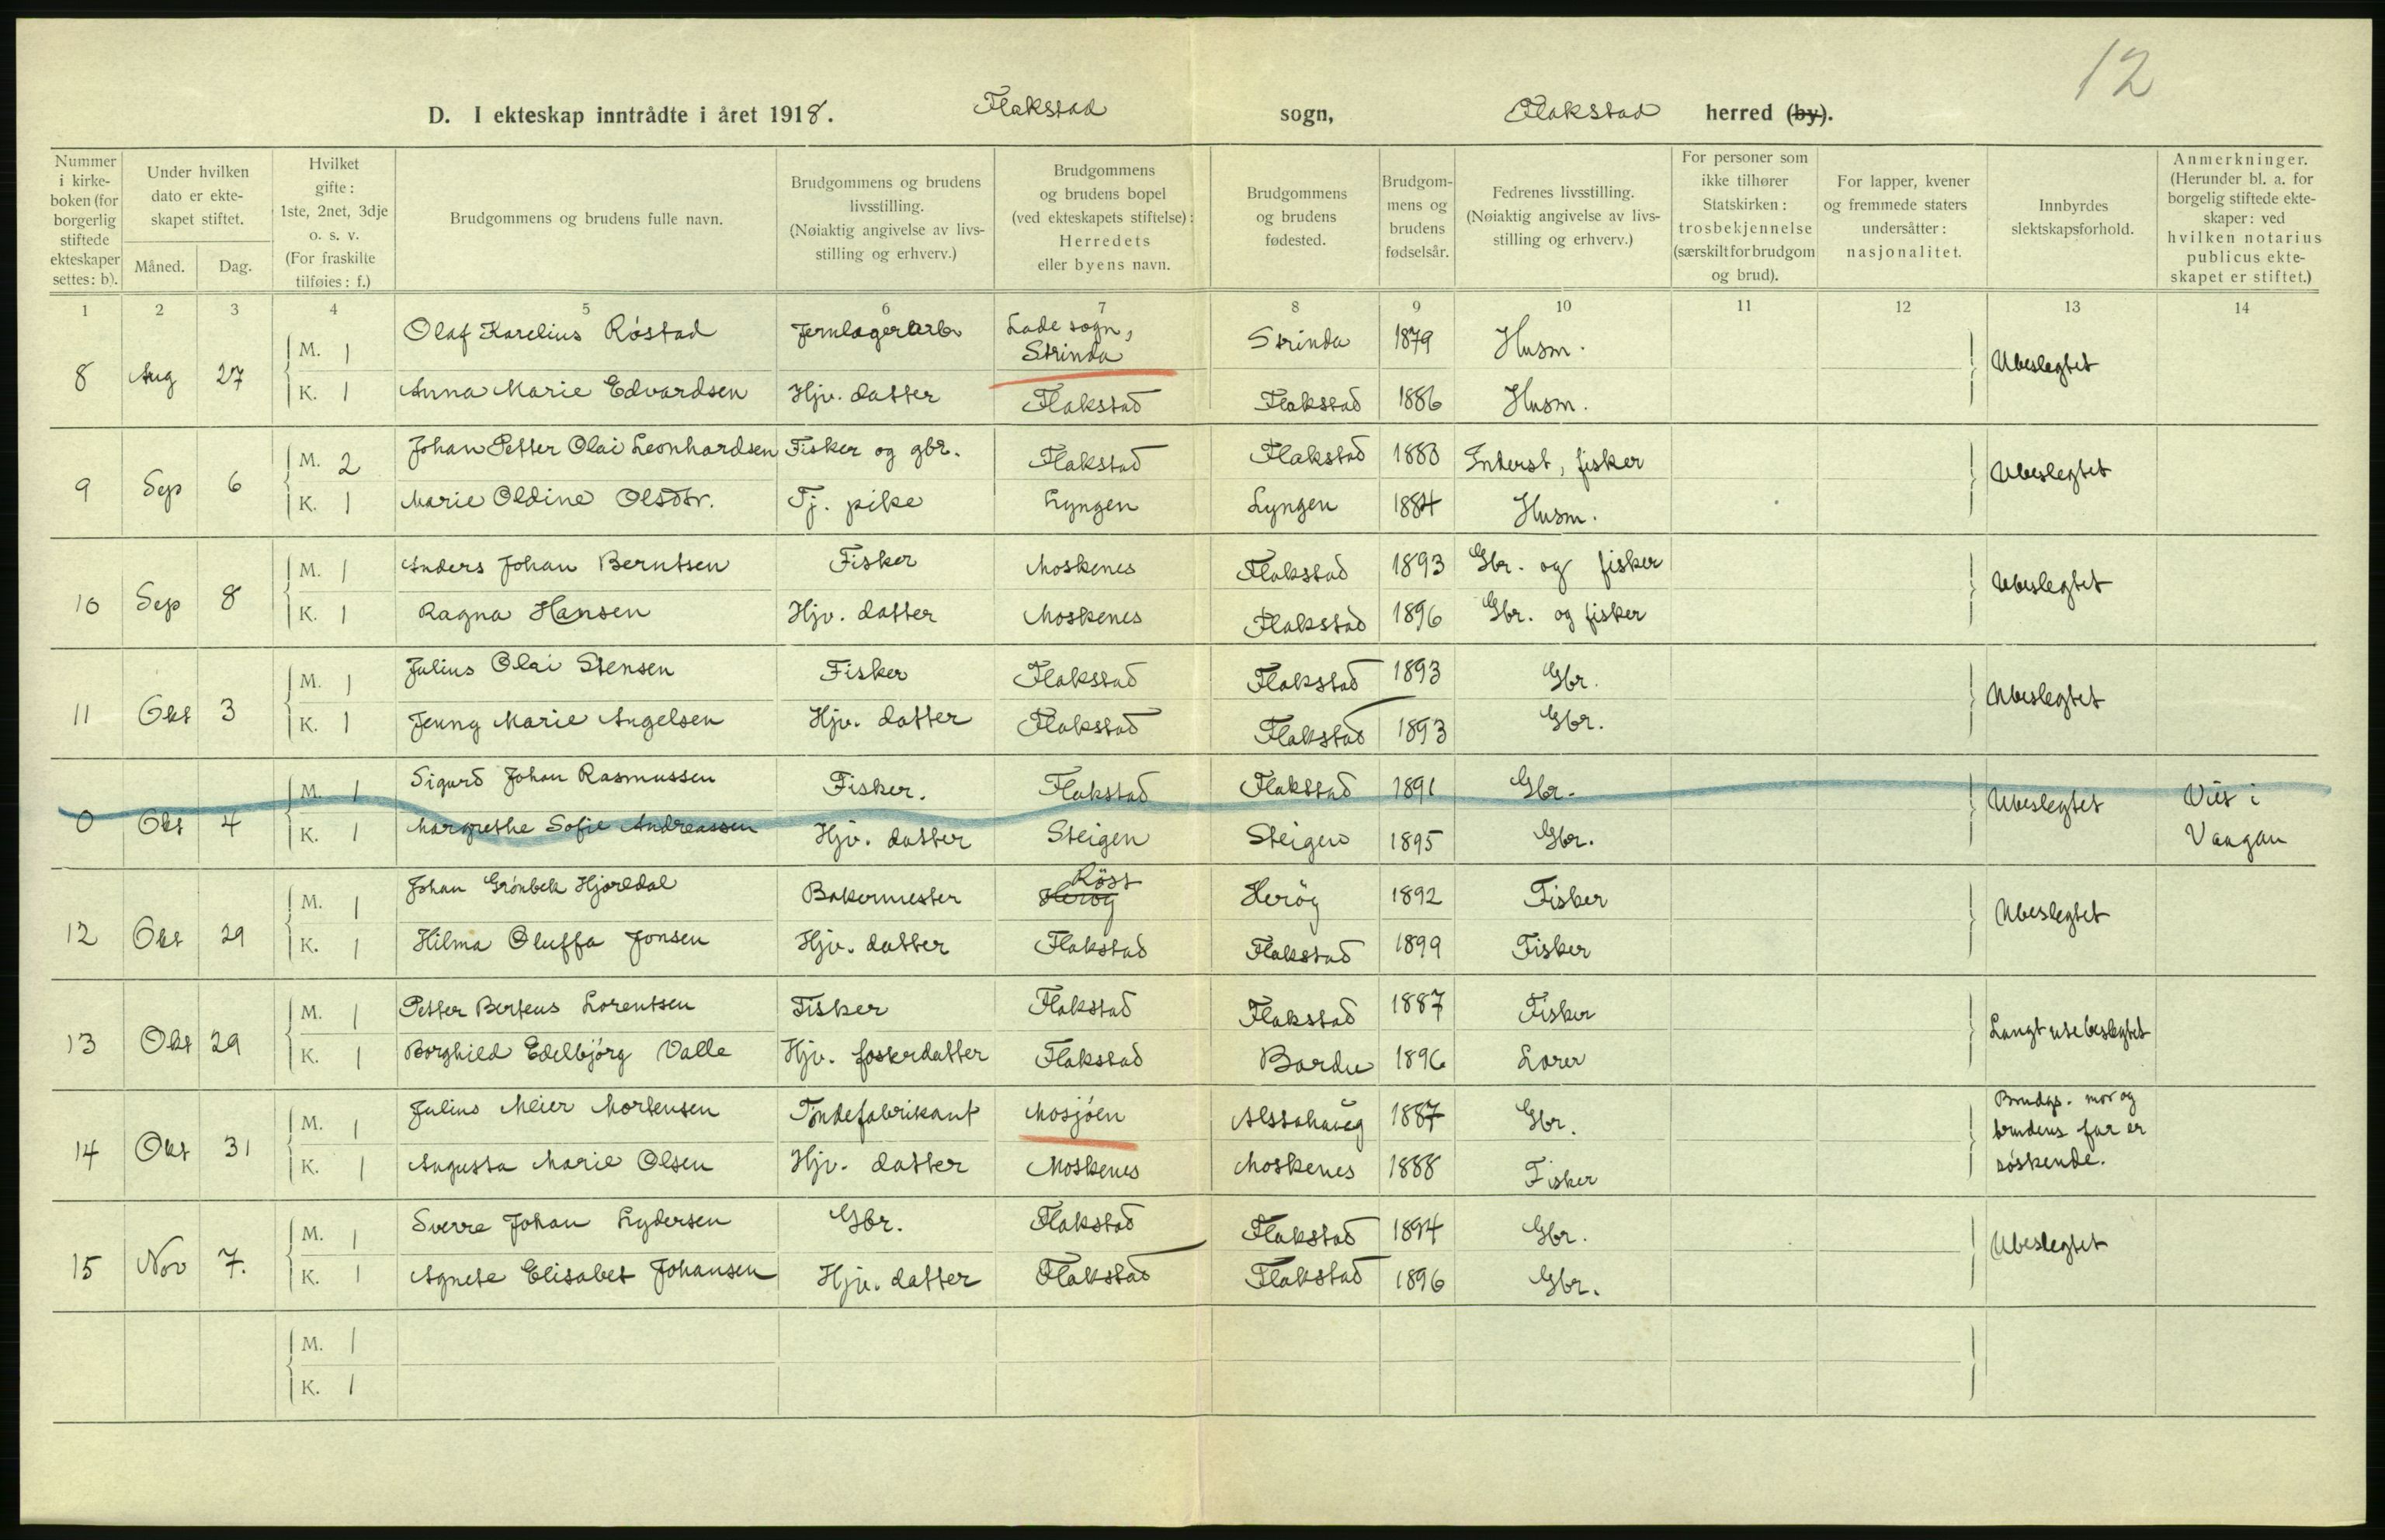 12
D. I ekteskap inntrådte i året 1918. Flakstad sogn, Flakstad herred (by).
Nummer i kirke-boken (for borgerlig stiftede ekteskaper settes: b).
Under hvilken dato er ekte-skapet stiftet.
Måned. Dag.
Hvilket gifte: 1ste, 2net, 3dje o. s. v. (For fraskilte tilføies: f.)
Brudgommens og brudens fulle navn.
Brudgommens og brudens livsstilling. (Nøiaktig angivelse av livs-stilling og erhverv.)
Brudgommens og brudens bopel (ved ekteskapets stiftelse): Herredets eller byens navn.
Brudgommens og brudens fødested.
Brudgom-mens og brudens fødselsår.
Fedrenes livsstilling. (Nøiaktig angivelse av livs-stilling og erhverv.)
For personer som ikke tilhører Statskirken: trosbekjennelse (særskilt for brudgom og brud).
For lapper, kvener og fremmede staters undersåtter: nasjonalitet.
Innbyrdes slektskapsforhold.
Anmerkninger. (Herunder bl. a. for borgelig stiftede ekte-skaper: ved hvilken notarius publicus ekte-skapet er stiftet.)
1 2 3 4 5 6 7 8 9 10 11 12 13 14
8 Aug 27 M. 1 Olaf Karelius Røstad Jernlagerarb Lade sogn, Strinda Strinda 1879 Husm. Ubeslegtet
K. 1 Anna Marie Edvardsen Hjv. datter Flakstad Flakstad 1886 Husm.
9 Sep 6 M. 2 Johan Petter Olai Leonhardsen Fisker og gbr. Flakstad Flakstad 1880 Inderst, fisker Ubeslegtet
K. 1 Marie Oldine Olsdtr. Tj. pike Lyngen Lyngen 1884 Husm.
10 Sep 8 M. 1 Anders Johan Berntsen Fisker Moskenes Flakstad 1893 Gbr. og fisker Ubeslegtet
K. 1 Ragna Hansen Hjv. datter Moskenes Flakstad 1896 Gbr. og fisker
11 Okt 3 M. 1 Julius Olai Stensen Fisker Flakstad Flakstad 1893 Gbr. Ubeslegtet
K. 1 Jenny Marie Angelsen Hjv. datter Flakstad Flakstad 1893 Gbr.
0 Okt 4 M. 1 Sigurd Johan Rasmussen Fisker. Flakstad Flakstad 1891 Gbr. Ubeslegtet Viet i
K. 1 Margrethe Sofie Andreassen Hjv. datter Steigen Steigen 1895 Gbr. Vaagan
12 Okt 29 M. 1 Johan Grønbek Hjoreldal Bakermester Herøy Röst Herøy 1892 Fisker Ubeslegtet
K. 1 Hilma Oluffa Jonsen Hjv. datter Flakstad Flakstad 1899 Fisker
13 Okt 29 M. 1 Petter Berteus Lorentsen Fisker Flakstad Flakstad 1887 Fisker Langt ute beslegtet
K. 1 Borghild Edelbjørg Valle Hjv. fosterdatter Flakstad Bardu 1896 Lærer
14 Okt 31 M. 1 Julius Meier Mortensen Tøndefabrikant Mosjøen Alstahaug 1887 Gbr. Brudgs. mor og
brudens far er
K. 1 Augusta Marie Olsen Hjv. datter Moskenes Moskenes 1888 Fisker søskende.
15 Nov 7. M. 1 Sverre Johan Lydersen Gbr. Flakstad Flakstad 1894 Gbr. Ubeslegtet
K. 1 Agnete Elisabet Johansen Hjv. datter Flakstad Flakstad 1896 Gbr.
M. 1
K. 1